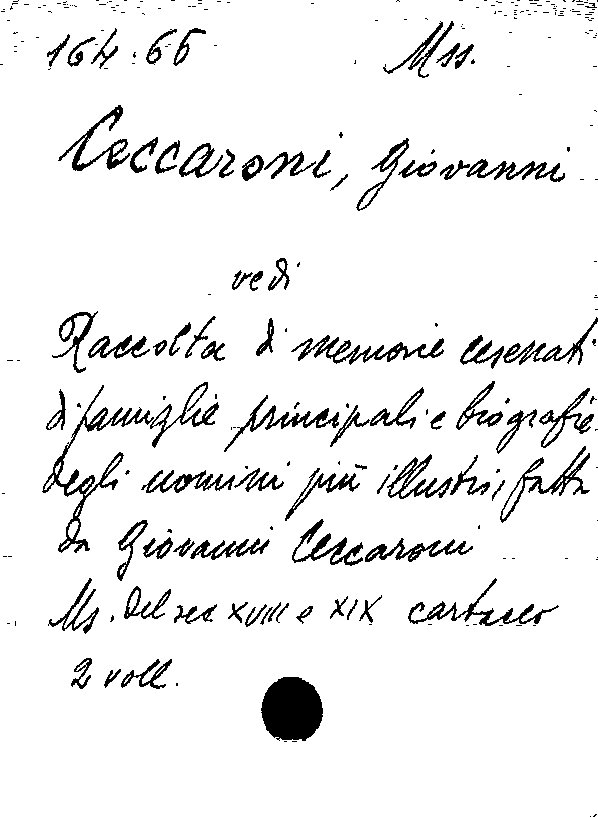 164.66 Mss.
Ceccaroni, Giovanni
vedi
Raccolta di memorie cesenati
di famiglie principali e biografie
degli uomini più illustri, fatta
da Giovanni Ceccaroni
Ms. del sec XVIII e XIX cartaceo
2 voll.